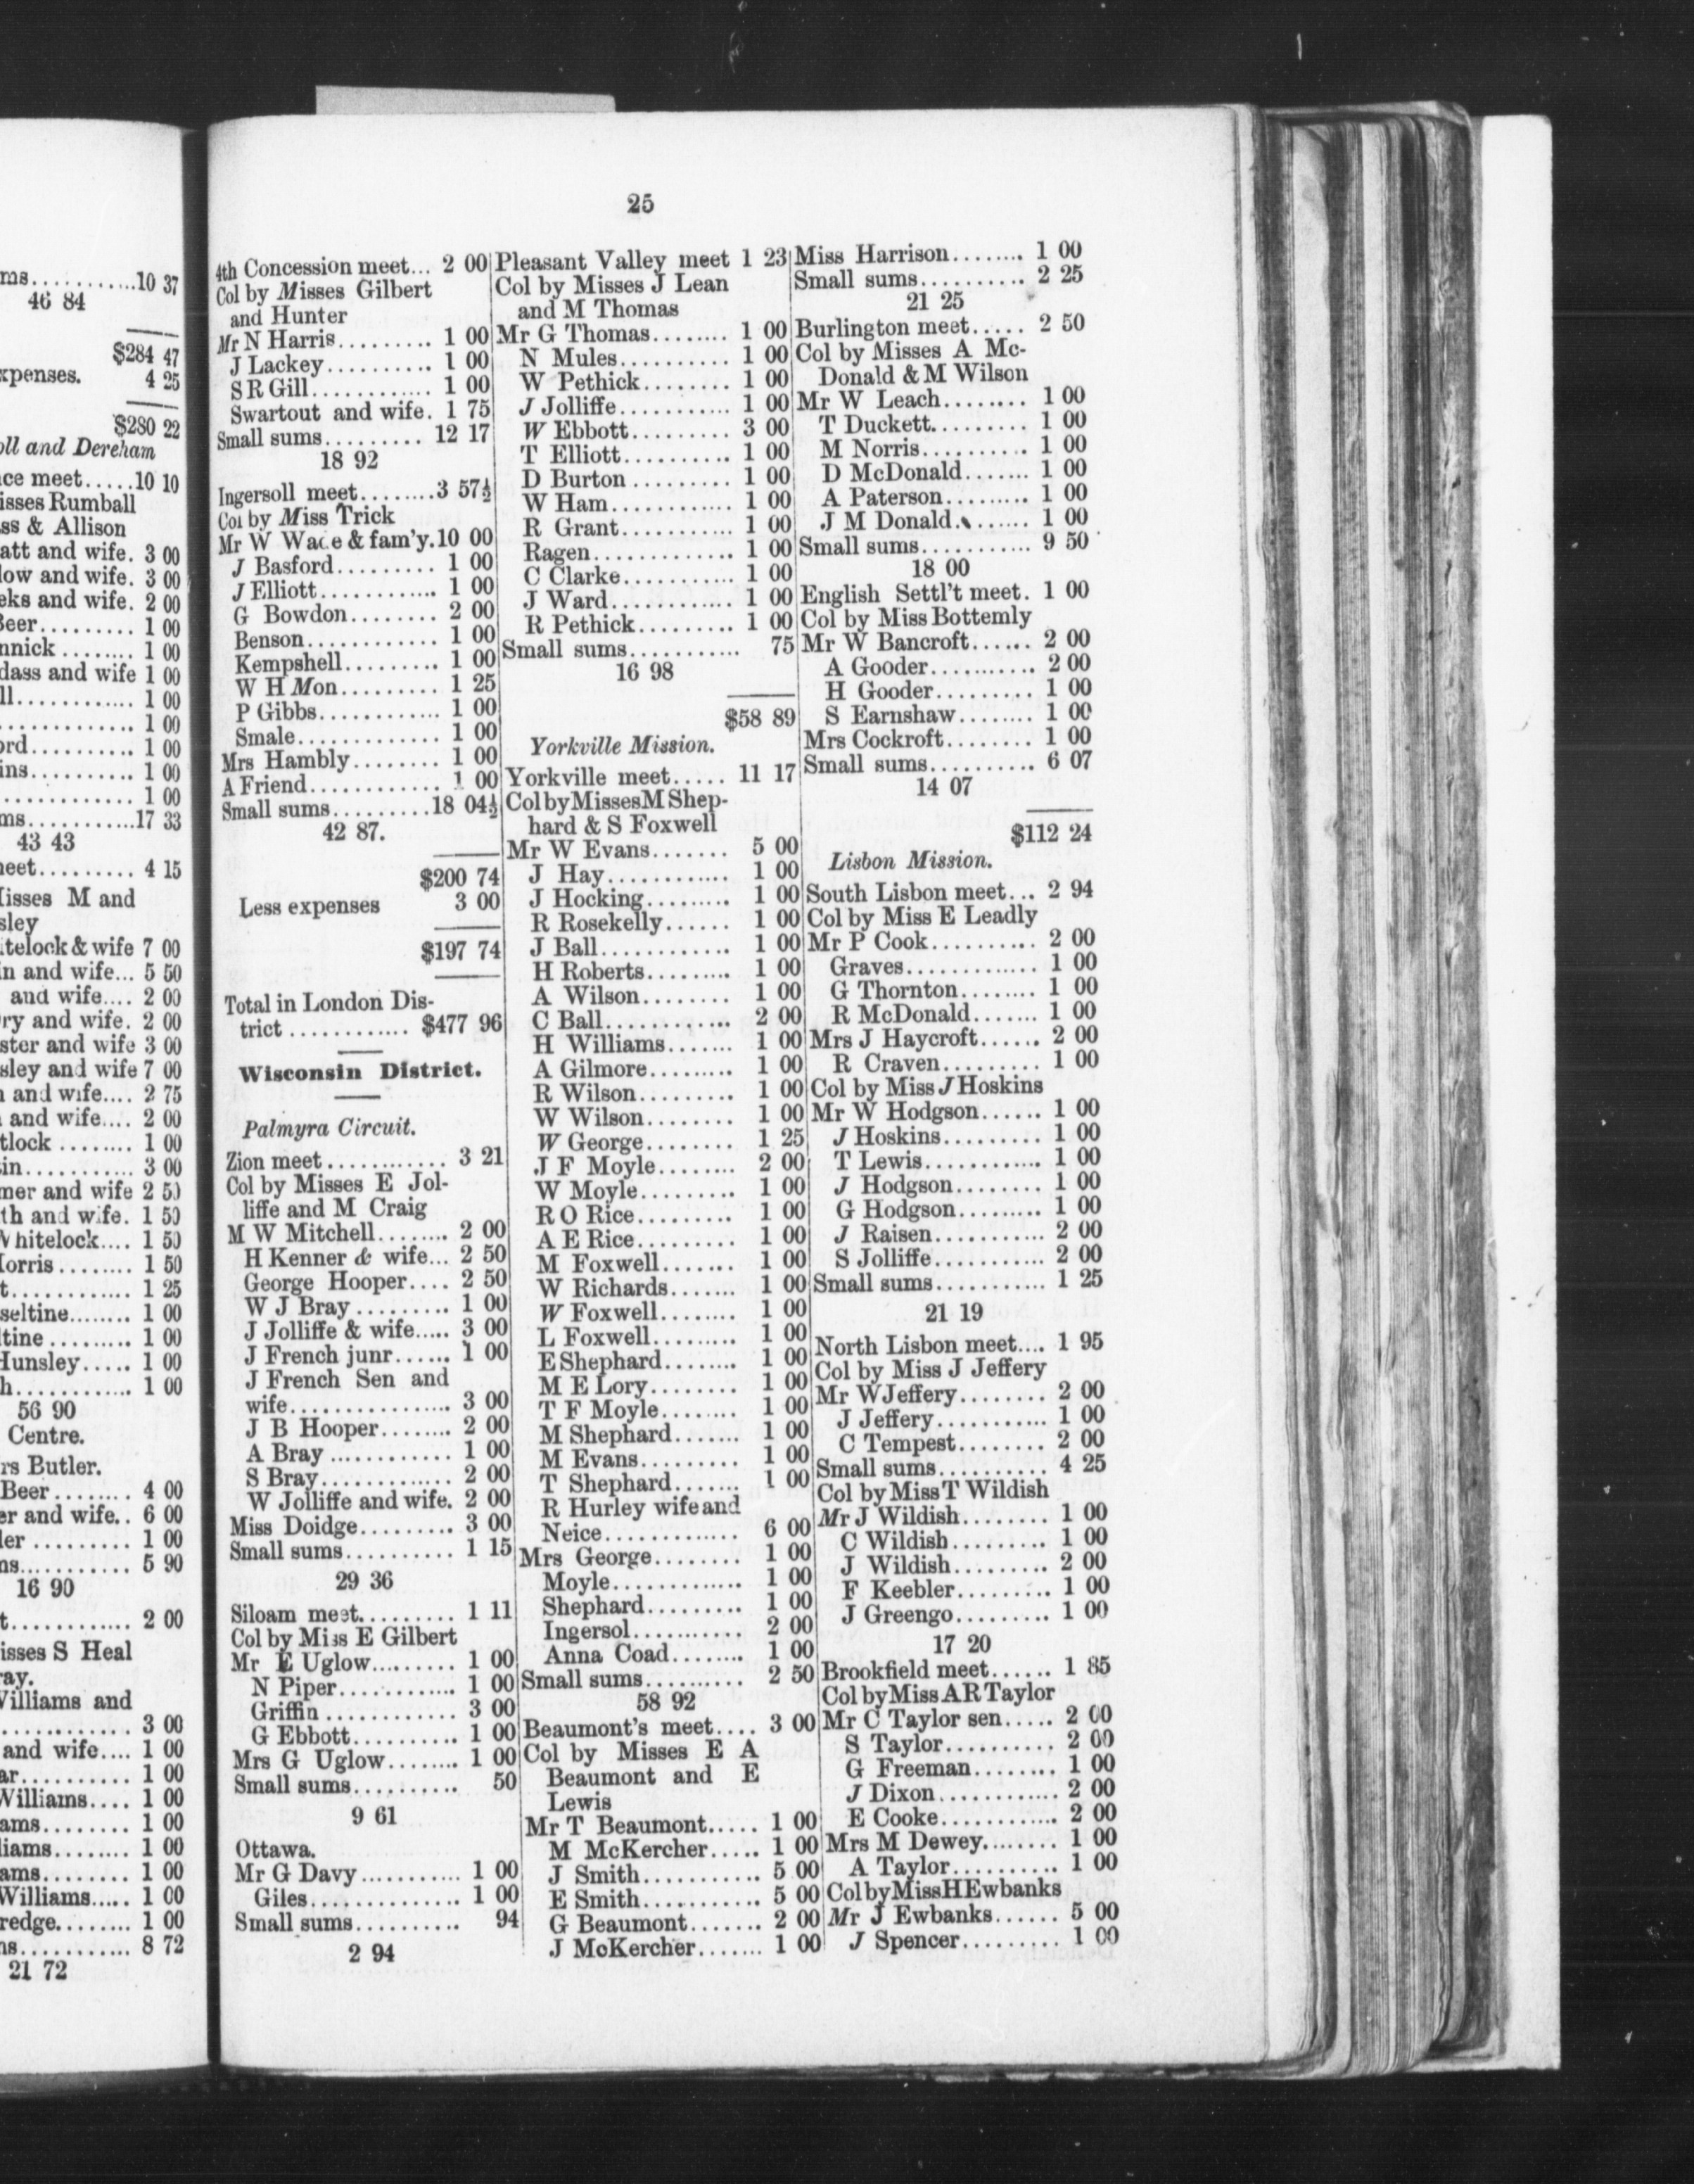 ms...........10 37
46 84
$284 47
xpenses. 4 25
$280 22
oll and Dereham
ce meet.....10 10
isses Rumball
ss & Allison
att and wife. 3 00
low and wife. 3 00
eks and wife. 2 00
Beer......... 1 00
nnick ........ 1 00
dass and wife 1 00
ll............ 1 00
............. 1 00
ord.......... 1 00
ins.......... 1 00
............. 1 00
ms..........17 33
43 43
neet......... 4 15
isses M and
sley
itelock & wife 7 00
in and wife... 5 50
and wife.... 2 00
ry and wife. 2 00
ster and wife 3 00
sley and wife 7 00
n and wife.... 2 75
and wife.... 2 00
tlock ........ 1 00
in........... 3 00
mer and wife 2 50
th and wife. 1 50
Whitelock.... 1 50
orris........ 1 50
t............ 1 25
seltine........ 1 00
ltine ......... 1 00
Hunsley..... 1 00
h............ 1 00
56 90
Centre.
rs Butler.
Beer........ 4 00
er and wife.. 6 00
ler ......... 1 00
ns........... 5 90
16 90
t............ 2 00
isses S Heal
ray.
Williams and
............. 3 00
and wife.... 1 00
ar.......... 1 00
Williams.... 1 00
ams........ 1 00
liams........ 1 00
ams......... 1 00
Williams..... 1 00
redge........ 1 00
ns........... 8 72
21 72
25
4th Concession meet... 2 00
Col by Misses Gilbert
and Hunter
Mr N Harris......... 1 00
J Lackey.......... 1 00
S R Gill............ 1 00
Swartout and wife. 1 75
Small sums......... 12 17
18 92
Ingersoll meet........3 57½
Col by Miss Trick
Mr W Wace & fam'y.10 00
J Basford......... 1 00
J Elliott............ 1 00
G Bowdon........ 2 00
Benson............ 1 00
Kempshell......... 1 00
W H Mon......... 1 25
P Gibbs............ 1 00
Smale.............. 1 00
Mrs Hambly........ 1 00
A Friend............ 1 00
Small sums.........18 04½
42 87.
$200 74
Less expenses 3 00
$197 74
Total in London Dis-
trict ............ $477 96
Wisconsin District.
Palmyra Circuit.
Zion meet............ 3 21
Col by Misses E Jol-
liffe and M Craig
M W Mitchell........ 2 00
H Kenner & wife... 2 50
George Hooper.... 2 50
W J Bray ......... 1 00
J Jolliffe & wife..... 3 00
J French junr...... 1 00
J French Sen and
wife................ 3 00
J B Hooper........ 2 00
A Bray ............ 1 00
S Bray............. 2 00
W Jolliffe and wife. 2 00
Miss Doidge......... 3 00
Small sums.......... 1 15
29 36
Siloam meet......... 1 11
Col by Miss E Gilbert
Mr E Uglow......... 1 00
N Piper............ 1 00
Griffin ............. 3 00
G Ebbott.......... 1 00
Mrs G Uglow....... 1 00
Small sums.......... 50
9 61
Ottawa.
Mr G Davy........... 1 00
Giles............... 1 00
Small sums.......... 94
2 94
Pleasant Valley meet 1 23
Col by Misses J Lean
and M Thomas
Mr G Thomas........ 1 00
N Mules........... 1 00
W Pethick........ 1 00
J Jolliffe........... 1 00
W Ebbott.......... 3 00
T Elliott........... 1 00
D Burton .......... 1 00
W Ham............ 1 00
R Grant........... 1 00
Ragen.............. 1 00
C Clarke........... 1 00
J Ward............ 1 00
R Pethick.......... 1 00
Small sums........... 75
16 98
$58 89
Yorkville Mission.
Yorkville meet..... 11 17
Col by Misses M Shep-
hard & S Foxwell
Mr W Evans....... 5 00
J Hay............ 1 00
J Hocking......... 1 00
R Rosekelly...... 1 00
J Ball............. 1 00
H Roberts......... 1 00
A Wilson......... 1 00
C Ball............. 2 00
H Williams....... 1 00
A Gilmore......... 1 00
R Wilson.......... 1 00
W Wilson......... 1 00
W George......... 1 25
J F Moyle........ 2 00
W Moyle.......... 1 00
R O Rice.......... 1 00
A E Rice.......... 1 00
M Foxwell....... 1 00
W Richards....... 1 00
W Foxwell........ 1 00
L Foxwell......... 1 00
E Shephard........ 1 00
M E Lory......... 1 00
T F Moyle........ 1 00
M Shephard....... 1 00
M Evans.......... 1 00
T Shephard....... 1 00
R Hurley wife and
Neice............. 6 00
Mrs George......... 1 00
Moyle............. 1 00
Shephard......... 1 00
Ingersol........... 2 00
Anna Coad........ 1 00
Small sums.......... 2 50
58 92
Beaumont's meet.... 3 00
Col by Misses E A
Beaumont and E
Lewis
Mr T Beaumont..... 1 00
M McKercher..... 1 00
J Smith............ 5 00
E Smith............ 5 00
G Beaumont....... 2 00
J McKercher....... 1 00
Miss Harrison........ 1 00
Small sums.......... 2 25
21 25
Burlington meet..... 2 50
Col by Misses A Mc-
Donald & M Wilson
Mr W Leach........ 1 00
T Duckett......... 1 00
M Norris.......... 1 00
D McDonald....... 1 00
A Paterson......... 1 00
J M Donald........ 1 00
Small sums........... 9 50
18 00
English Settl't meet. 1 00
Col by Miss Bottemly
Mr W Bancroft...... 2 00
A Gooder........... 2 00
H Gooder......... 1 00
S Earnshaw........ 1 00
Mrs Cockroft........ 1 00
Small sums.......... 6 07
14 07
$112 24
Lisbon Mission.
South Lisbon meet... 2 94
Col by Miss E Leadly
Mr P Cook.......... 2 00
Graves............. 1 00
G Thornton........ 1 00
R McDonald....... 1 00
Mrs J Haycroft...... 2 00
R Craven.......... 1 00
Col by Miss J Hoskins
Mr W Hodgson...... 1 00
J Hoskins.......... 1 00
T Lewis............ 1 00
J Hodgson......... 1 00
G Hodgson......... 1 00
J Raisen........... 2 00
S Jolliffe........... 2 00
Small sums........... 1 25
21 19
North Lisbon meet.... 1 95
Col by Miss J Jeffery
Mr W Jeffery........ 2 00
J Jeffery........... 1 00
C Tempest........ 2 00
Small sums.......... 4 25
Col by Miss T Wildish
Mr J Wildish........ 1 00
C Wildish......... 1 00
J Wildish......... 2 00
F Keebler......... 1 00
J Greengo......... 1 00
17 20
Brookfield meet...... 1 85
Col by Miss A R Taylor
Mr C Taylor sen..... 2 00
S Taylor........... 2 00
G Freeman........ 1 00
J Dixon............ 2 00
E Cooke............ 2 00
Mrs M Dewey........ 1 00
A Taylor.......... 1 00
Col by Miss H Ewbanks
Mr J Ewbanks...... 5 00
J Spencer.......... 1 00